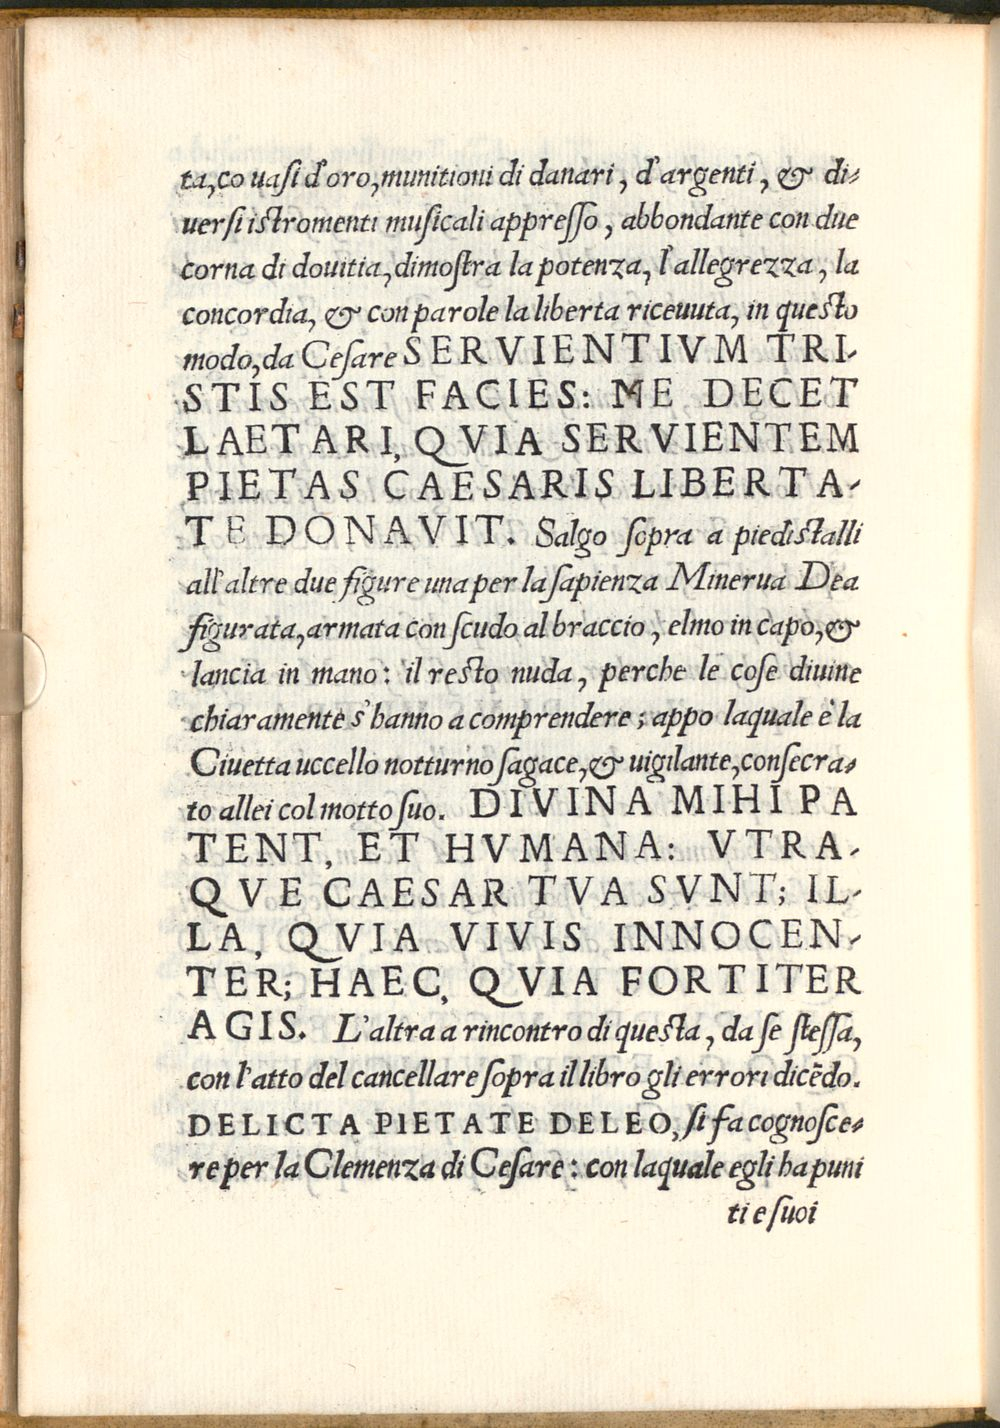 ta, co uasi d'oro, munitioni di danari, d'argenti, & di-
uersi istromenti musicali appresso, abbondante con due
corna di douitia, dimostra la potenza, l'allegrezza, la
concordia, & con parole la liberta riceuuta, in questo
modo, da Cesare SERVIENTIVM TRI-
STIS EST FACIES: ME DECET
LAETARI, QVIA SERVIENTEM
PIETAS CAESARIS LIBERTA-
TE DONAVIT. Salgo sopra a piedistalli
all'altre due figure una per la sapienza Minerua Dea
figurata, armata con scudo al braccio, elmo in capo, &
lancia in mano: il resto nuda, perche le cose diuine
chiaramente s'hanno a comprendere; appo laquale è la
Ciuetta uccello notturno sagace, & uigilante, consecra-
to allei col motto suo. DIVINA MIHI PA
TENT, ET HVMANA: VTRA-
QVE CAESAR TVA SVNT; IL-
LA, QVIA VIVIS INNOCEN-
TER; HAEC, QVIA FORTITER
AGIS. L'altra a rincontro di questa, da se stessa,
con l'atto del cancellare sopra il libro gli errori dicẽdo.
DELICTA PIETATE DELEO, si fa cognosce-
re per la Clemenza di Cesare: con laquale egli ha puni
ti e suoi